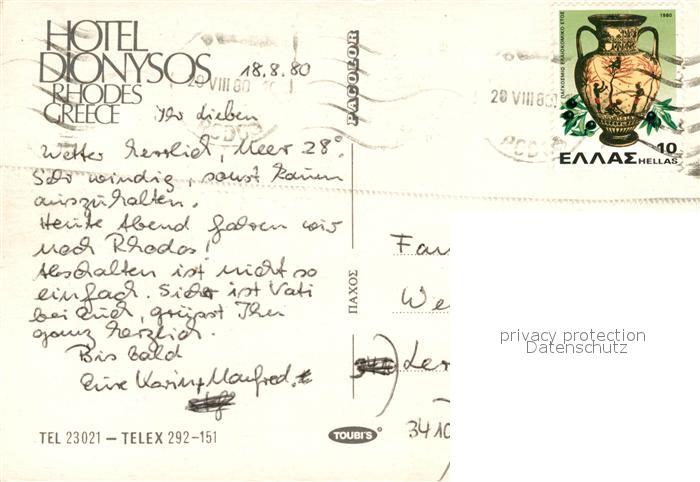 HOTEL
DIONYSOS
RHODES
GREECE
18.8.80
Ihr Lieben
Wetter herrlich, Meer 28°.
Sehr windig, sonst kaum
auszuhalten.
Heute Abend fahren wir
nach Rhodos!
Abschalten ist nicht so
einfach. Sicher ist Vati
bei Euch, grüsst Ihn
ganz herzlich.
Bis bald
Eure Karin + Manfred.
TEL 23021 — TELEX 292-151
PACOLOR
ΠΑΧΟΣ
TOUBI'S
20 VIII 80
20 VIII 80
ΠΑΓΚΟΣΜΙΟ ΕΛΑΙΟΚΟΜΙΚΟ ΕΤΟΣ
1980
10
ΕΛΛΑΣ HELLAS
Fam
We
Ler
3410
privacy protection
Datenschutz